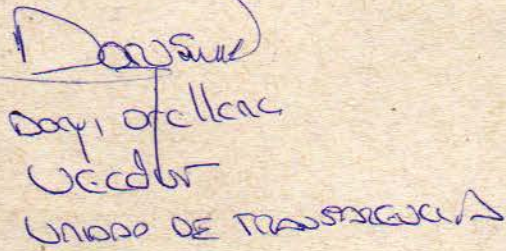 Dopyi Orellana
Veedor
UNIDAD DE TRANSPARENCIA